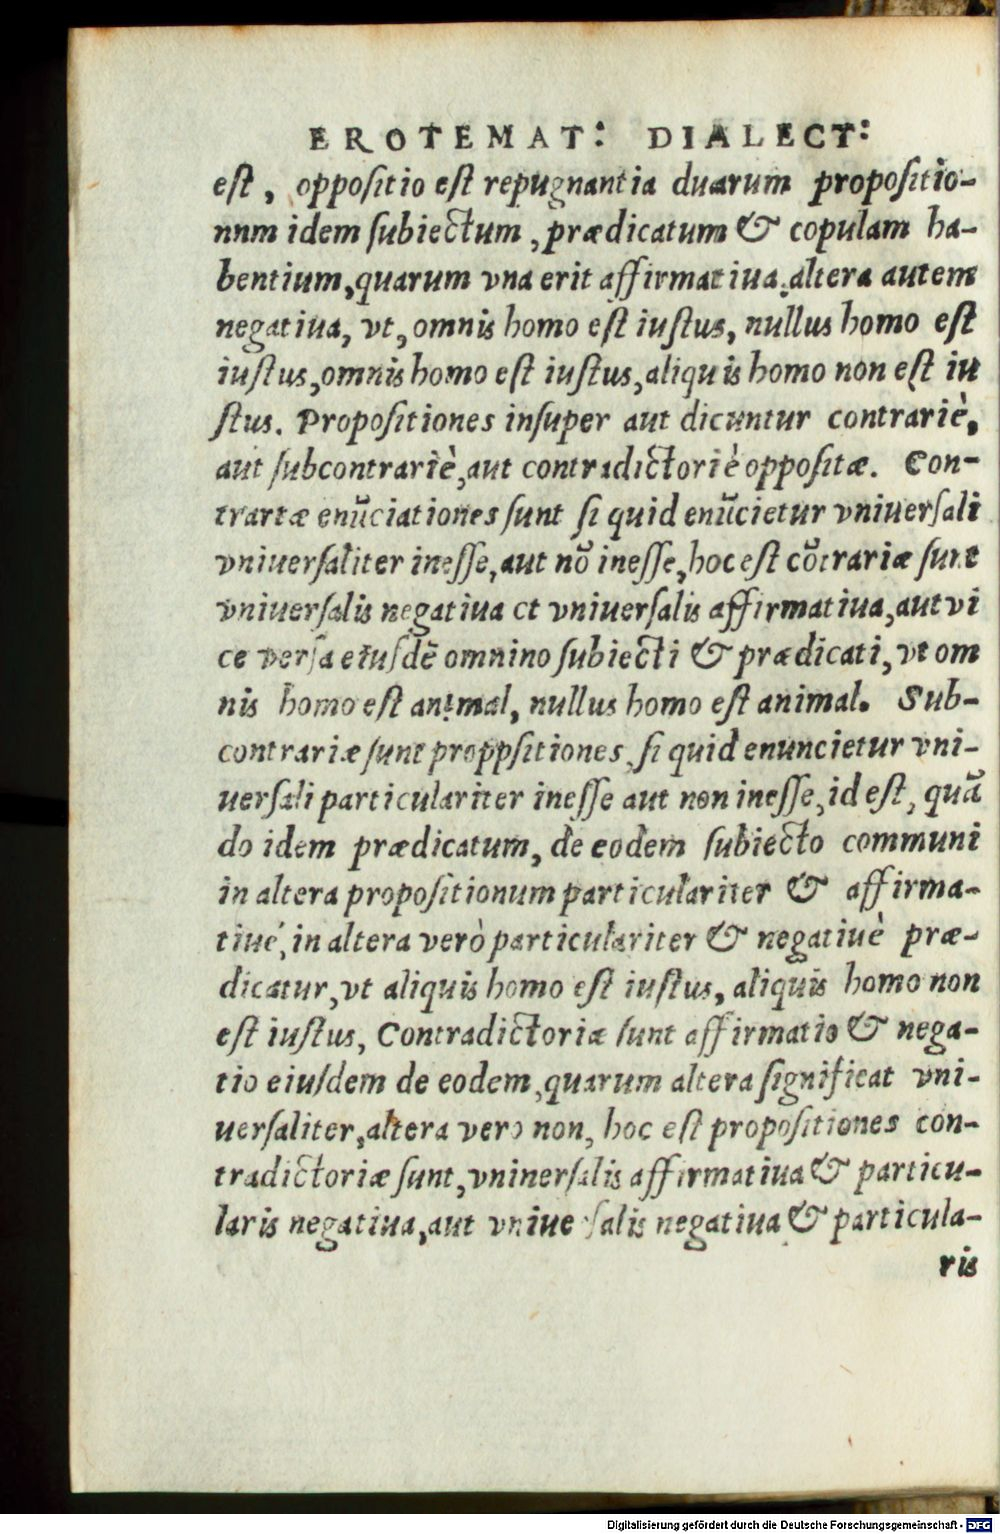 EROTEMAT: DIALECT:
eſt, oppoſitio eſt repugnantia duarum propoſitio-
nnm idem ſubiectum, prædicatum & copulam ha-
bentium, quarum vna erit affirmatiua, altera autem
negatiua, vt, omnis homo eſt iuſtus, nullus homo eſt
iuſtus, omnis homo eſt iuſtus, aliquis homo non eſt iu
ſtus. Propoſitiones inſuper aut dicuntur contrariè,
aut ſubcontrariè, aut contradictoriè oppoſitæ. Con-
trariæ enũciationes ſunt ſi quid enũcietur vniuerſali
vniuerſaliter ineſſe, aut nõ ineſſe, hoc eſt cõtrariæ ſunt
vniuerſalis negatiua et vniuerſalis affirmatiua, aut vi
ce verſa eiuſdẽ omnino ſubiecti & prædicati, vt om
nis homo eſt animal, nullus homo eſt animal. Sub-
contrariæ ſunt proppſitiones, ſi quid enuncietur vni-
uerſali particulariter ineſſe aut non ineſſe, id eſt, quã
do idem prædicatum, de eodem ſubiecto communi
in altera propoſitionum particulariter & affirma-
tiué, in altera verò particulariter & negatiuè præ-
dicatur, vt aliquis homo eſt iuſtus, aliquis homo non
eſt iuſtus, Contradictoriæ ſunt affirmatio & nega-
tio eiuſdem de eodem, quarum altera ſignificat vni-
uerſaliter, altera vero non, hoc eſt propoſitiones con-
tradictoriæ ſunt, vninerſalis affirmatiua & particu-
laris negatiua, aut vniuerſalis negatiua & particula-
ris
Digitalisierung gefördert durch die Deutsche Forschungsgemeinschaft - DFG